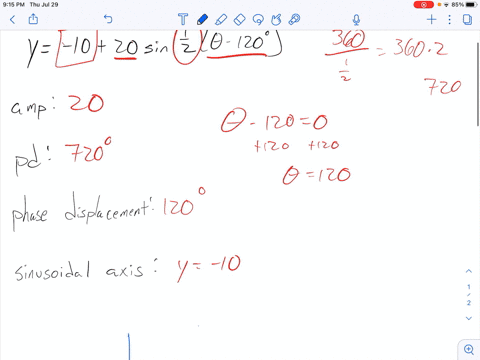 9:15 PM Thu Jul 29
85%
y = -10 + 20 sin 1/2 (θ - 120°)
360 / 1/2 = 360 · 2
720
amp: 20
θ - 120 = 0
+120 +120
θ = 120
pd: 720°
phase displacement: 120°
sinusoidal axis: y = -10
1
/
2